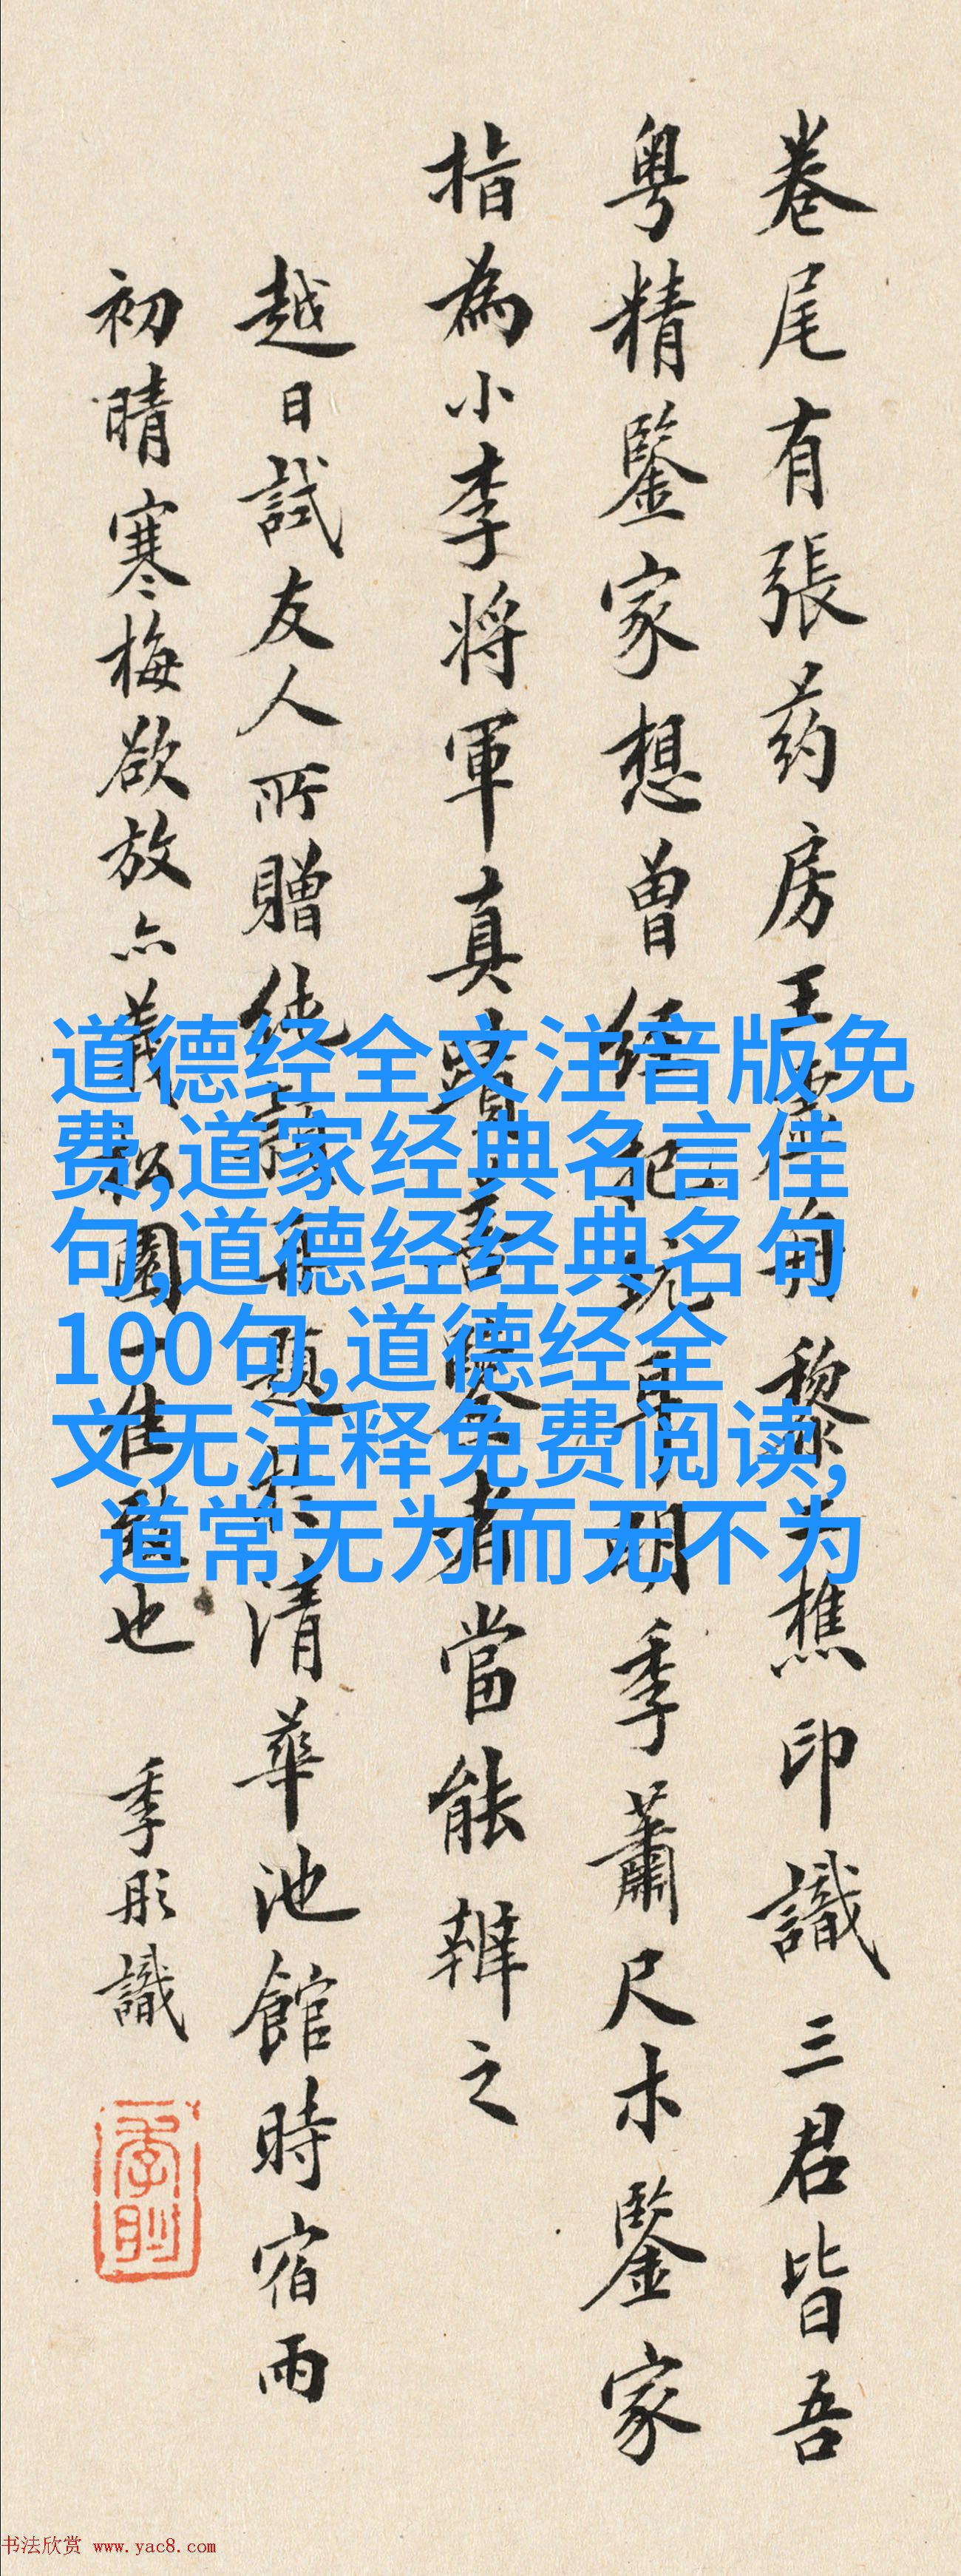 卷尾有張药房王黎樵印識三君皆吾
粤精鑒家想曾經明季蕭尺木鑒家
指為小李将軍真者當能辨之
越日試友人所贈清華池館時宿雨
初晴寒梅欲放亦園一佳也 季彤識
道德经全文注音版免
费,道家经典名言佳
句,道德经经典名句
100句,道德经全
文无注释免费阅读,
道常无为而无不为
书法欣赏 www.yac8.com